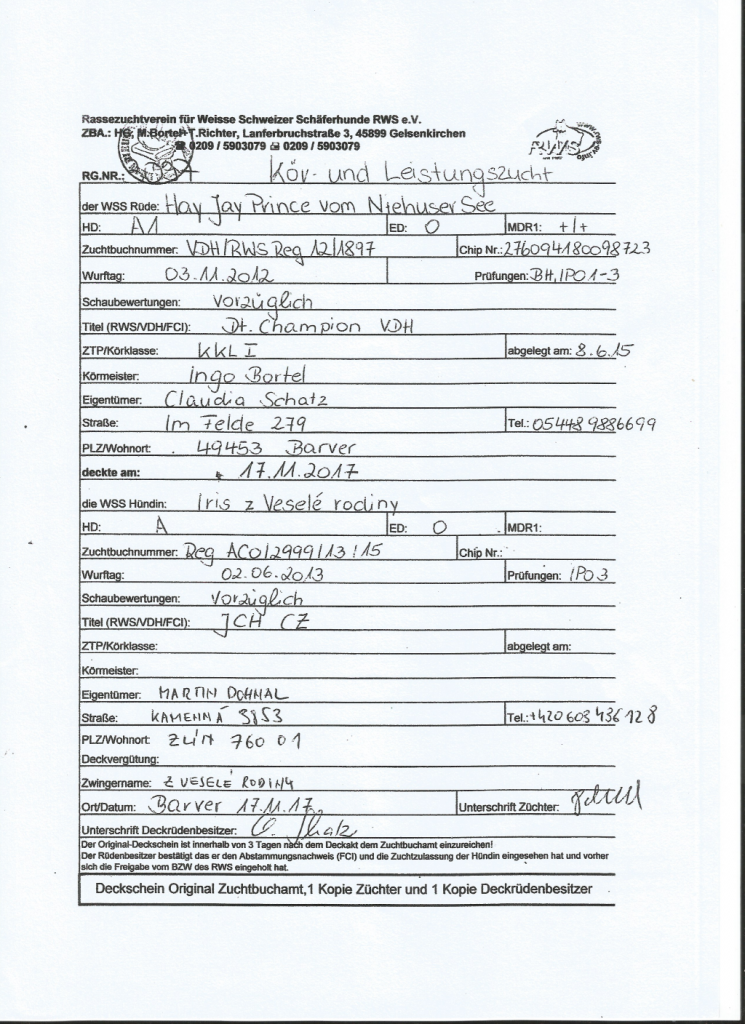 Rassezuchtverein für Weisse Schweizer Schäferhunde RWS e.V.
ZBA.: HG. M.Bortel-T.Richter, Lanferbruchstraße 3, 45899 Gelsenkirchen
☎ 0209 / 5903079 📠 0209 / 5903079
RG.NR.: Kör- und Leistungszucht
der WSS Rüde: Hay Jay Prince vom Niehuser See
HD: A1 ED: 0 MDR1: +/+
Zuchtbuchnummer: VDH/RWS Reg 12/1897 Chip Nr.: 276094180098723
Wurftag: 03.11.2012 Prüfungen: BH, IPO1-3
Schaubewertungen: Vorzüglich
Titel (RWS/VDH/FCI): Dt. Champion VDH
ZTP/Körklasse: KKL I abgelegt am: 8.6.15
Körmeister: Ingo Bortel
Eigentümer: Claudia Schatz
Straße: Im Felde 279 Tel.: 05448 9886699
PLZ/Wohnort: 49453 Barver
deckte am: 17.11.2017
die WSS Hündin: Iris z Veselé rodiny
HD: A ED: 0 MDR1:
Zuchtbuchnummer: Reg ACO/2999/13/15 Chip Nr.:
Wurftag: 02.06.2013 Prüfungen: IPO3
Schaubewertungen: Vorzüglich
Titel (RWS/VDH/FCI): JCH CZ
ZTP/Körklasse: abgelegt am:
Körmeister:
Eigentümer: MARTIN DOHNAL
Straße: KAMENNÁ 3853 Tel.: +420 603 436 128
PLZ/Wohnort: ZLÍN 760 01
Deckvergütung:
Zwingername: Z VESELÉ RODINY
Ort/Datum: Barver 17.11.17 Unterschrift Züchter:
Unterschrift Deckrüdenbesitzer: C. Schatz
Der Original-Deckschein ist innerhalb von 3 Tagen nach dem Deckakt dem Zuchtbuchamt einzureichen!
Der Rüdenbesitzer bestätigt das er den Abstammungsnachweis (FCI) und die Zuchtzulassung der Hündin eingesehen hat und vorher
sich die Freigabe vom BZW des RWS eingeholt hat.
Deckschein Original Zuchtbuchamt,1 Kopie Züchter und 1 Kopie Deckrüdenbesitzer